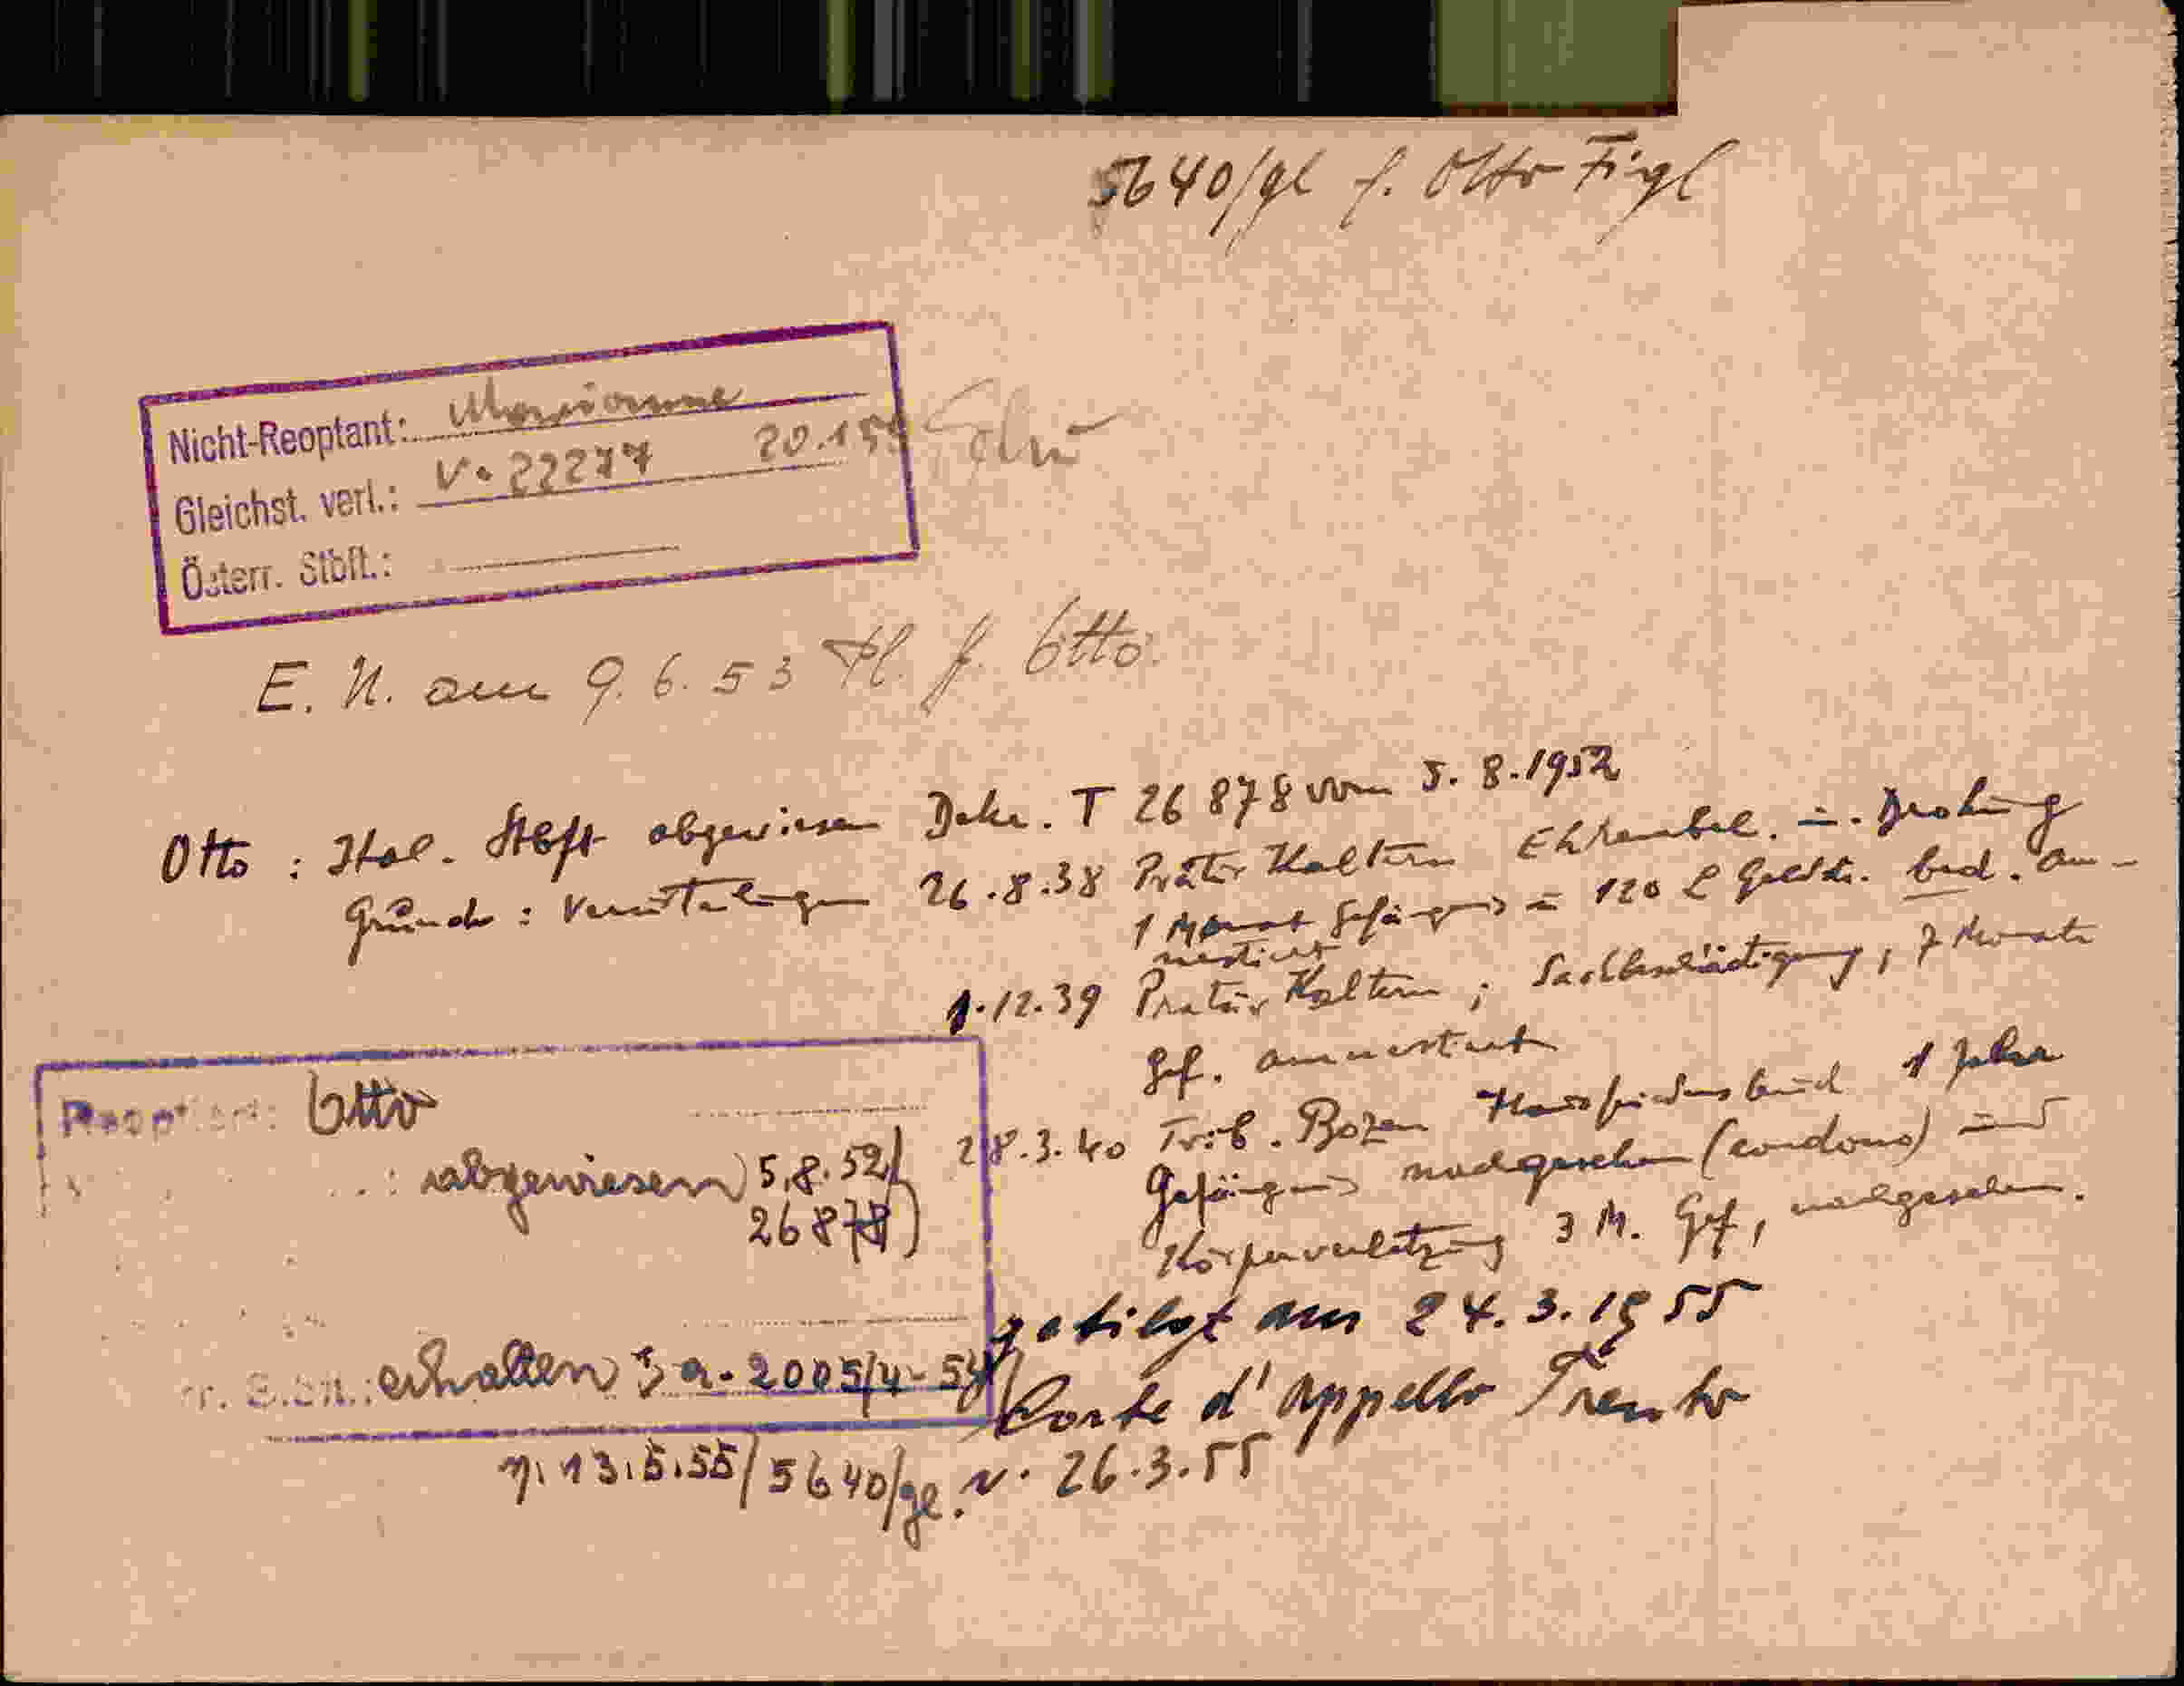 5640/gl f. Otto Figl
Nicht-Reoptant: Marianne
Gleichst. verl.: V. 22277 20.1.55
Österr. Stbft.:
E. N. am 9.6.53 f. Otto
Otto : Ital. Stbft abgewiesen Dekr. T 26 878 vom 5.8.1952
Gründe : Verurteilungen 26.8.38 Prätur Kaltern Ehrenbel. u. Drohung
1 Monat Gefängnis u 120 L Geldstr. bed. am-
nestiert
1.12.39 Pretur Kaltern ; Sachbeschädigung, 7 Monate
Gef. amnestiert
28.3.40 Trib. Bozen Hausfriedensbruch 1 Jahr
Gefängnis nachgesehen (condono) und
Körperverletzung 3 M. Gef, nachgesehen.
Reoptant: Otto
: abgewiesen 5.8.52/
26878)
getilgt am 24.3.1955
erhalten 3a-2005/4-54
Corte d'Appello Trento
n. 13.5.55/5640/gl. v. 26.3.55